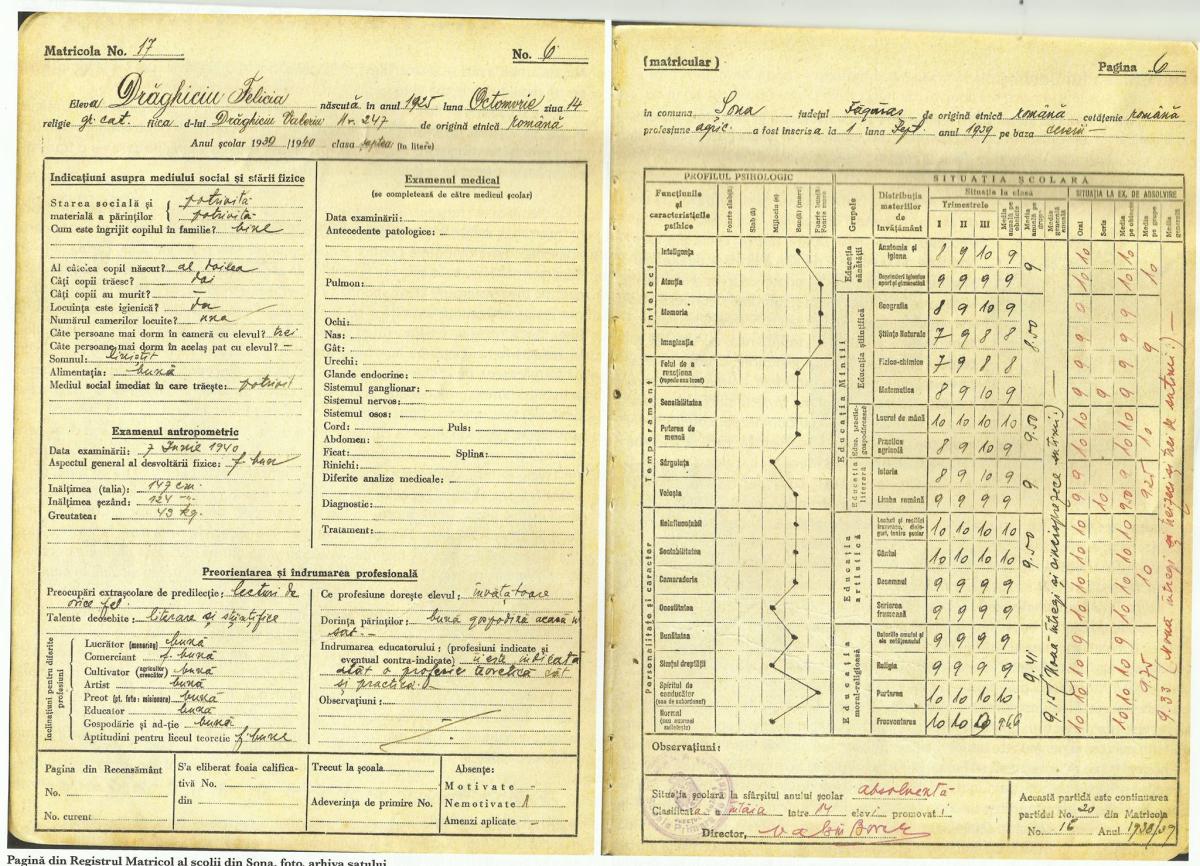 Matricola No. 17
No. 6
Eleva Drăghiciu Felicia născută în anul 1925 luna Octomvrie ziua 14
religie gr. cat. fiica d-lui Drăghiciu Valeriu Nr. 247 de origină etnică română
Anul școlar 1939/1940 clasa șaptea (în litere)
Indicațiuni asupra mediului social și stării fizice
Starea socială și potrivită
materială a părinților potrivită
Cum este îngrijit copilul în familie? bine
Al câtelea copil născut? al doilea
Câți copii trăesc? doi
Câți copii au murit? —
Locuința este igienică? da
Numărul camerilor locuite? una
Câte persoane mai dorm în cameră cu elevul? trei
Câte persoane mai dorm în acelaș pat cu elevul? —
Somnul: liniștit
Alimentația: bună
Mediul social imediat în care trăește: potrivit
Examenul antropometric
Data examinării: 7 Iunie 1940
Aspectul general al desvoltării fizice: f. bun
Inălțimea (talia): 147 cm.
Inălțimea șezând: 124 "
Greutatea: 43 kg.
Examenul medical
(se completează de către medicul școlar)
Data examinării:
Antecedente patologice:
Pulmon:
Ochi:
Nas:
Gât:
Urechi:
Glande endocrine:
Sistemul ganglionar:
Sistemul nervos:
Sistemul osos:
Cord: Puls:
Abdomen:
Ficat: Splina:
Rinichi:
Diferite analize medicale:
Diagnostic:
Tratament:
Preorientarea și îndrumarea profesională
Preocupări extrașcolare de predilecție: lecturi de
orice fel
Talente deosebite: literare și științifice
Inclinațiuni pentru diferite profesiuni
Lucrător (meseriaș) bună
Comerciant f. bună
Cultivator (agricultor crescător) bună
Artist bună
Preot (pt. fete: misionare) bună
Educator bună
Gospodărie și ad-ție bună
Aptitudini pentru liceul teoretic f. bune
Ce profesiune dorește elevul: învățătoare
Dorința părinților: bună gospodină acasă în
sat.
Indrumarea educatorului: (profesiuni indicate și
eventual contra-indicate) îi este indicată
atât o profesie teoretică cât
și practică.
Observațiuni:
Pagina din Recensământ
No.
No. curent
S'a eliberat foaia califica-
tivă No.
din
Trecut la școala
Adeverința de primire No.
Absențe:
Motivate -
Nemotivate 1
Amenzi aplicate -
(matricular)
Pagina 6
în comuna Șona județul Făgăraș de origină etnică română cetățenie română
profesiune agric. a fost înscrisă la 1 luna Sept. anul 1939 pe baza cererii
PROFILUL PSIHOLOGIC
Funcțiunile
și
caracteristicile
psihice
Foarte slab(ă)
Slab (ă)
Mijlociu (e)
Bun(ă) (mare)
Intelect
Inteligența
Atenția
Memoria
Imaginația
Temperament
Felul de a
reacționa
(repede sau încet)
Sensibilitatea
Puterea de
muncă
Sârguința
Voința
Personalitate și caracter
Neinfluențabil
Sociabilitatea
Camaraderia
Onestitatea
Bunătatea
Simțul dreptății
Spiritul de
conducător
(sau de subordonat)
Normal
(sau anormal
sufletește)
SITUAȚIA ȘCOLARĂ
Grupele
Distribuția
materiilor
de
învățământ
Situația la clasă
Trimestrele
I II III
SITUAȚIA LA EX. DE ABSOLVIRE
Oral
Scris
Educația sănătății
Anatomia și igiena 8 9 10 9 9 10 10
Deprinderi igienice sport și gimnastică 9 9 9 9 10 10 10
Educația Minții
Educația științifică
Geografia 8 9 10 9 8.00 9 9
Științe Naturale 7 9 8 8 9 9
Fizico-chimice 7 9 8 8 9 9 9
Matematica 8 9 10 9 9 9 9
Educ. practic-gospodărească
Lucrul de mână 10 10 10 10 9.50 10 10
Practica agricolă 8 9 10 9 10 10 10
Educația literară
Istoria 8 9 10 9 9 9 9 9.25
Limba română 9 9 9 9 9 10 9.50
Educația artistică
Cântul 10 10 10 10 9.50
Desemnul 9 9 9 9 10
Scrierea frumoasă 9 9 9 9
Educația moral-religioasă
Datoriile omului și ale cetățeanului 9 9 9 9 9.41 9 9
Religia 9 9 9 9 10 10 9.75
Purtarea 10 10 10 10 10 10
Frecventarea 10 10 10 9.66 10 10
9.15 (Nouă întregi și cincisprezece sutimi) —
9.33 (Nouă întregi și treizeci și trei de sutimi) —
Observațiuni:
Situația școlară la sfârșitul anului școlar absolventă
Clasificată a întâia între 14 elevi promovați
Director,
Această partidă este continuarea
partidei No. 20 din Matricola
No. 16 Anul 1938/39
Pagină din Registrul Matricol al școlii din Șona, foto, arhiva satului